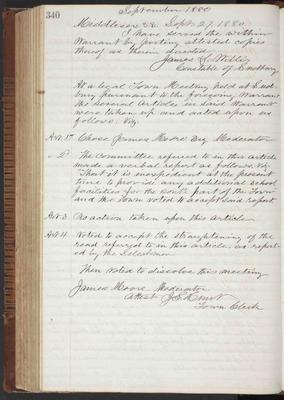 340
September 1880
Middlesex ss. Sept. 27, 1880.
I have served the within
Warrant by posting attested copies
thereof as therein directed
James L. Willis
Constable of Sudbury
At a legal Town Meeting held at Sud-
bury pursuant to the foregoing Warrant
the several Articles in said Warrant
were taken up and acted upon as
follows: Viz.
Art. 1st. Chose James Moore Esq Moderator
" 2d. The Committee referred to in this article
made a verbal report as follows, Viz.
"That it is inexpedient at the present
time to provide any additional school
facilities for the South part of the Town
and the Town voted to accept said report
Art. 3. No action taken upon this Article
Art. 4. Voted to accept the straightening of the
road referred to in this article, as report-
ed by the Selectmen
Then voted to dissolve this meeting
James Moore Moderator
Attest J. S. Hunt
Town Clerk